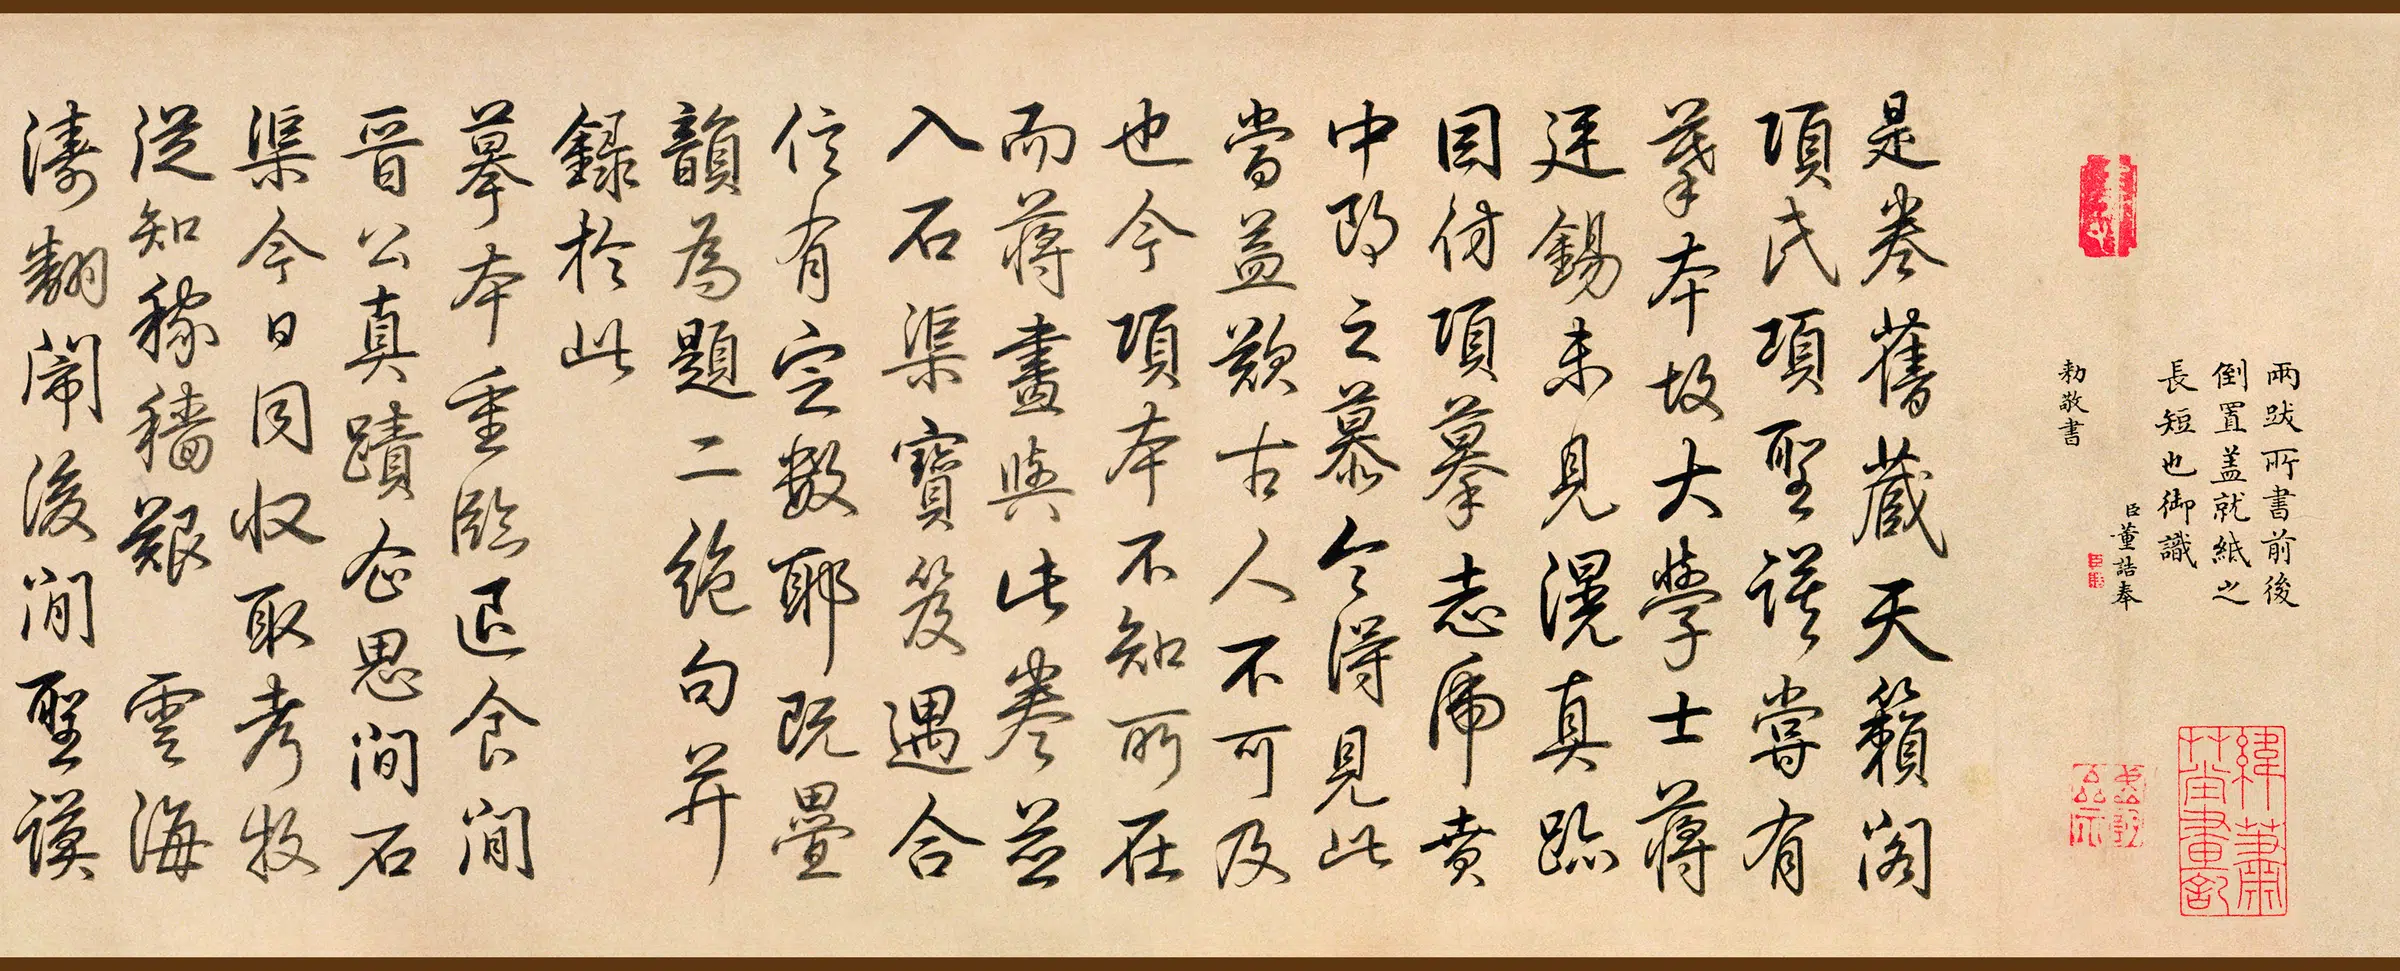 兩跋所書前後
倒置盖就紙之
長短也御識
臣董誥奉
勅敬書
是卷舊藏天籟閣
項氏項聖謨嘗有
摹本故大學士蔣
廷錫未見滉真跡
因仿項摹志虎賁
中郎之慕今得見此
當益歎古人不可及
也今項本不知所在
而蔣畫與此卷並
入石渠寶笈遇合
信有定數耶既疊
韻為題二絕句并
錄於此
摹本重臨退食間
晉公真蹟企思間石
渠今日同收取考牧
從知稼穡艱 雲海
濤翻鬧後間聖謨
緯蕭草堂畫記